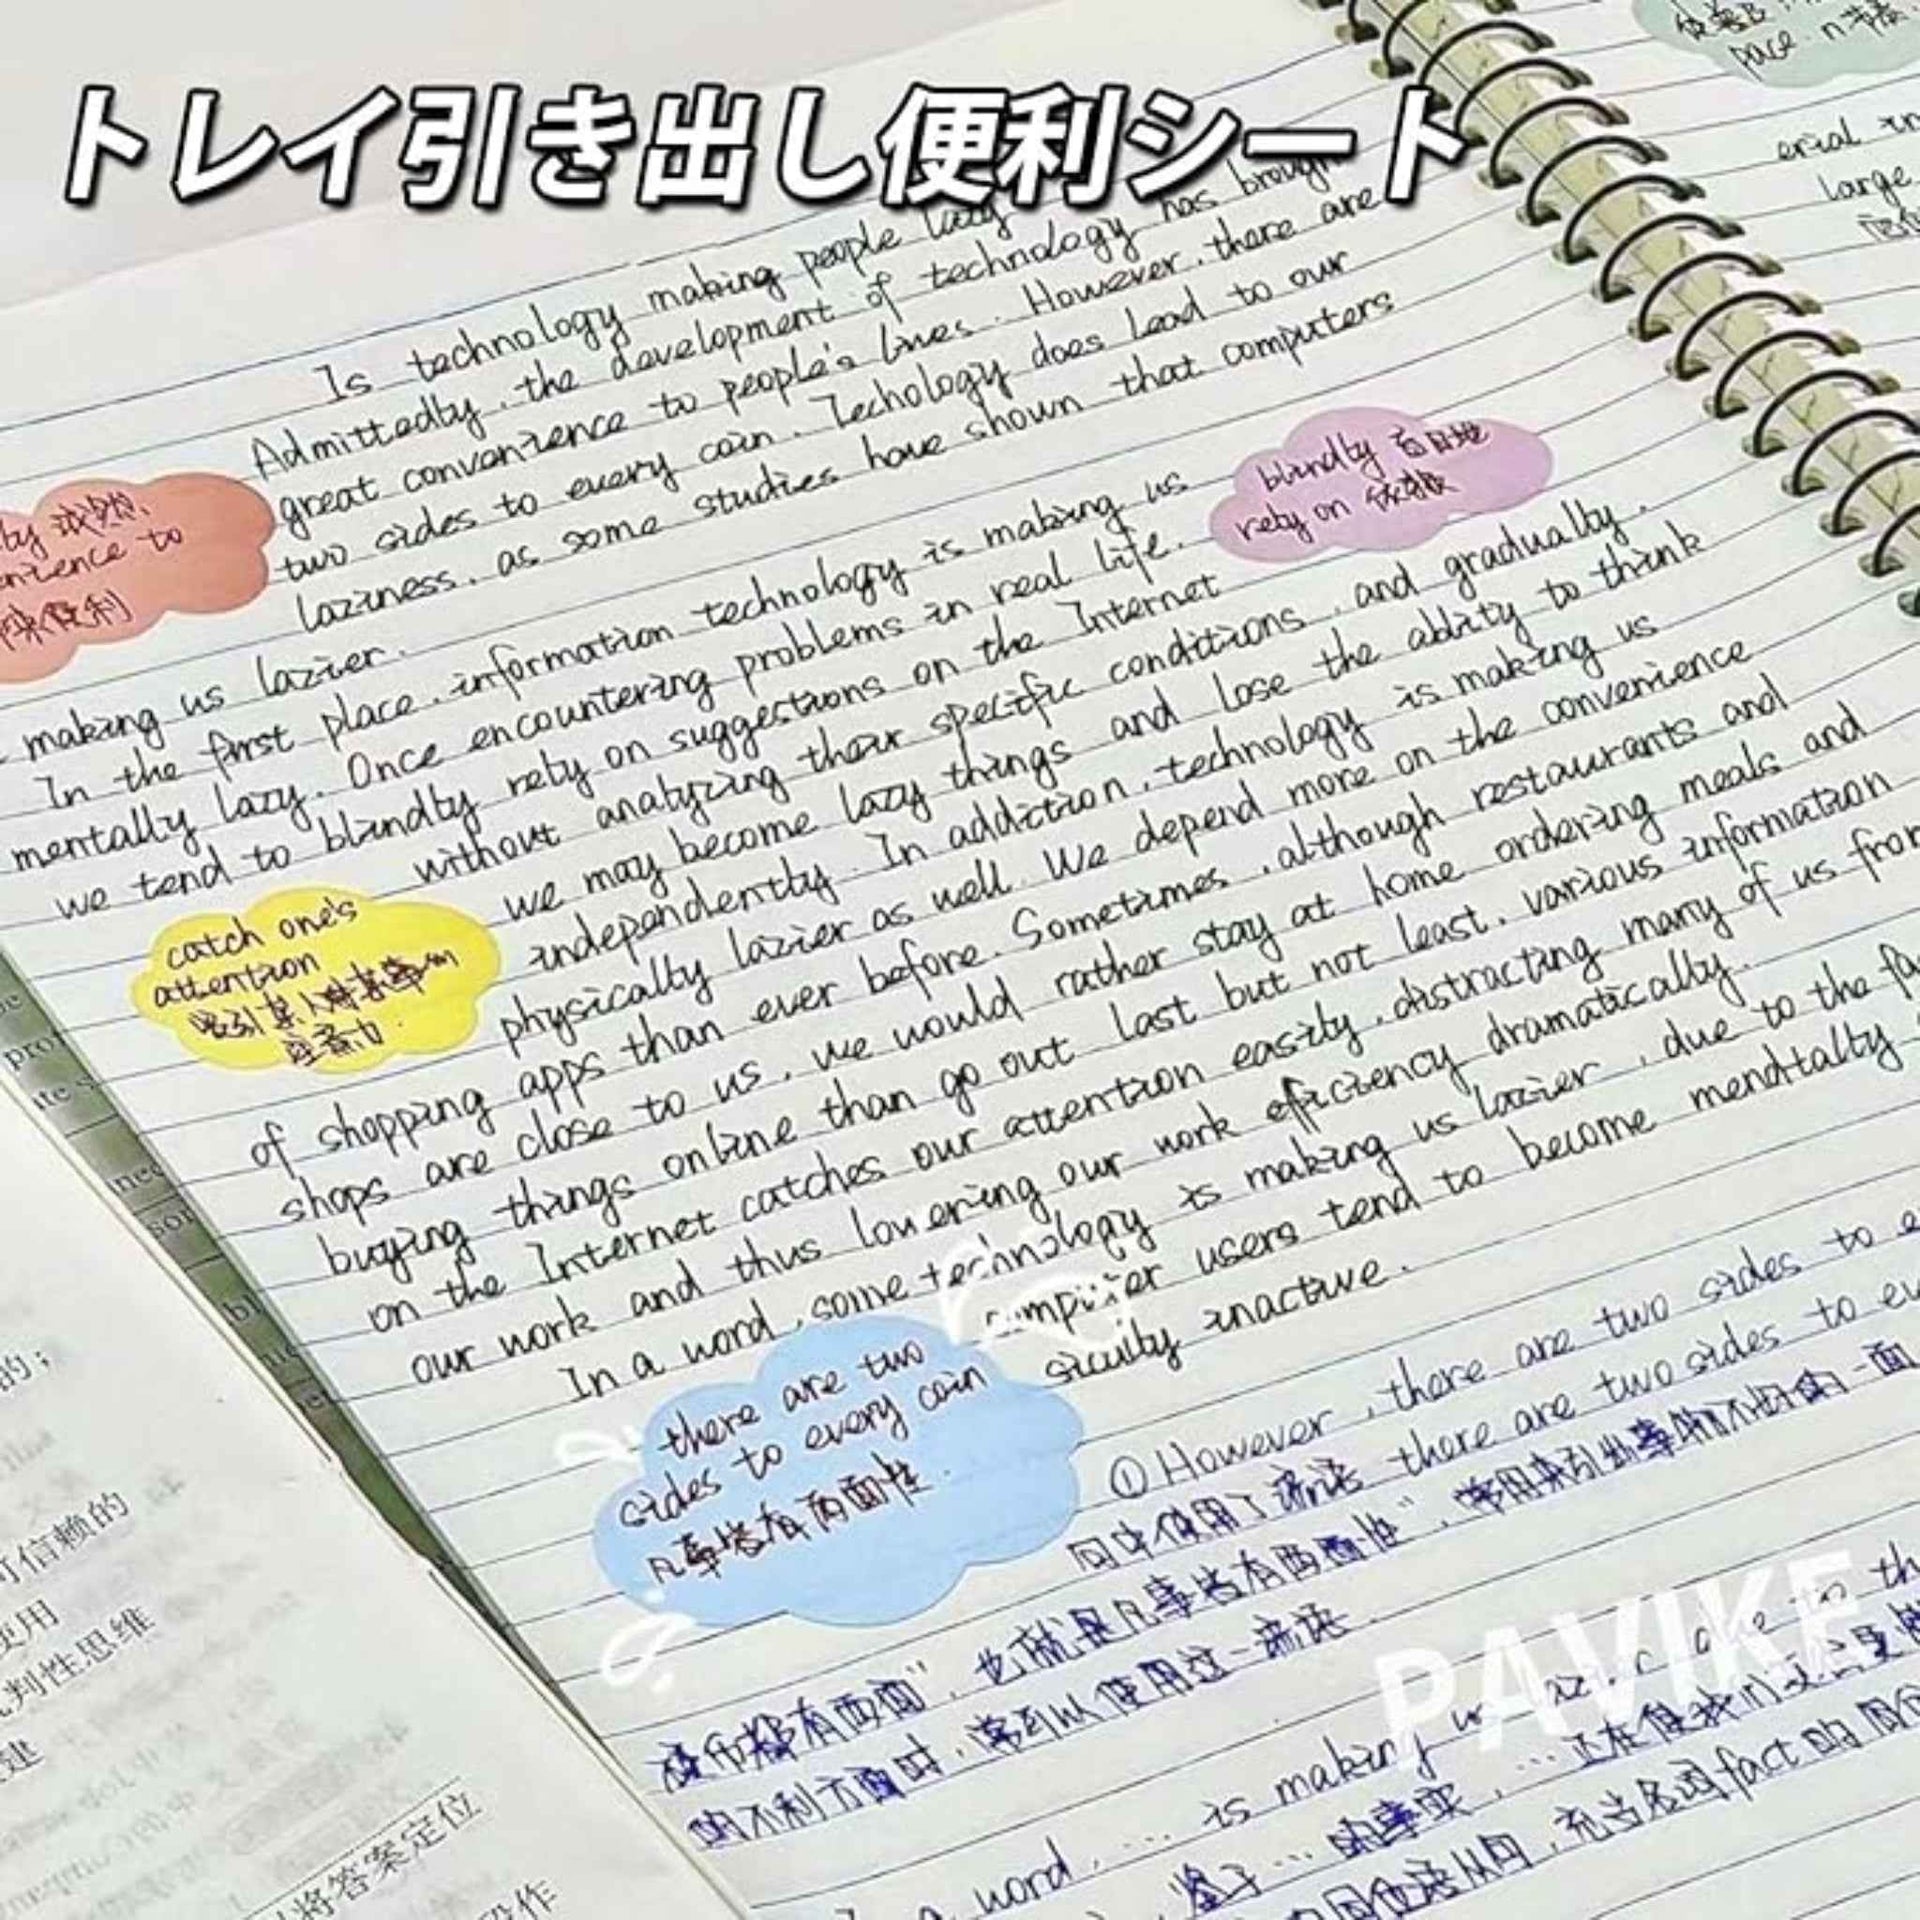 トレイ引き出し便利シート
Is technology making people lazy
Admittedly, the development of technology has brought
great convenience to people's lives. However, there are
two sides to every coin. Techology does lead to our
laziness, as some studies have shown that computers
making us lazier.
In the first place, information technology is making us
mentally lazy. Once encountering problems in real life.
we tend to blindly rely on suggestions on the Internet
without analyzing their specific conditions, and gradually,
we may become lazy things and lose the ability to think
independently. In addiction, technology is making us
physically lazier as well. We depend more on the convenience
of shopping apps than ever before. Sometimes, although restaurants and
shops are close to us, we would rather stay at home ordering meals and
buying things online than go out last but not least, various information
on the Internet catches our attention easily, distracting many of us from
our work and thus lowering our work efficiency dramatically.
In a word, some technology is making us lazier, due to the fa
computer users tend to become mendtally
sically inactive.
enience to
blindly 盲目地
rely on 依靠
catch one's
attention
吸引某人对某事的
注意力.
there are two
sides to every coin
凡事皆有两面性.
① However, there are two sides to e
句中使用了谚语 there are two sides to ev
硬币都有两面", 也就是凡事皆有两面性", 常用来引出事物不好的一面
的不利方面时, 常可以使用这一谚语.
a word, ... is making us lazier due to th
鉴于...的事实, ... 正在使我们变得更
同位语从句, 充当名词fact的同位
pace. n 节奏.
erial in
large
可信赖的
使用
判性思维
建
将答案定位
PAVIKE